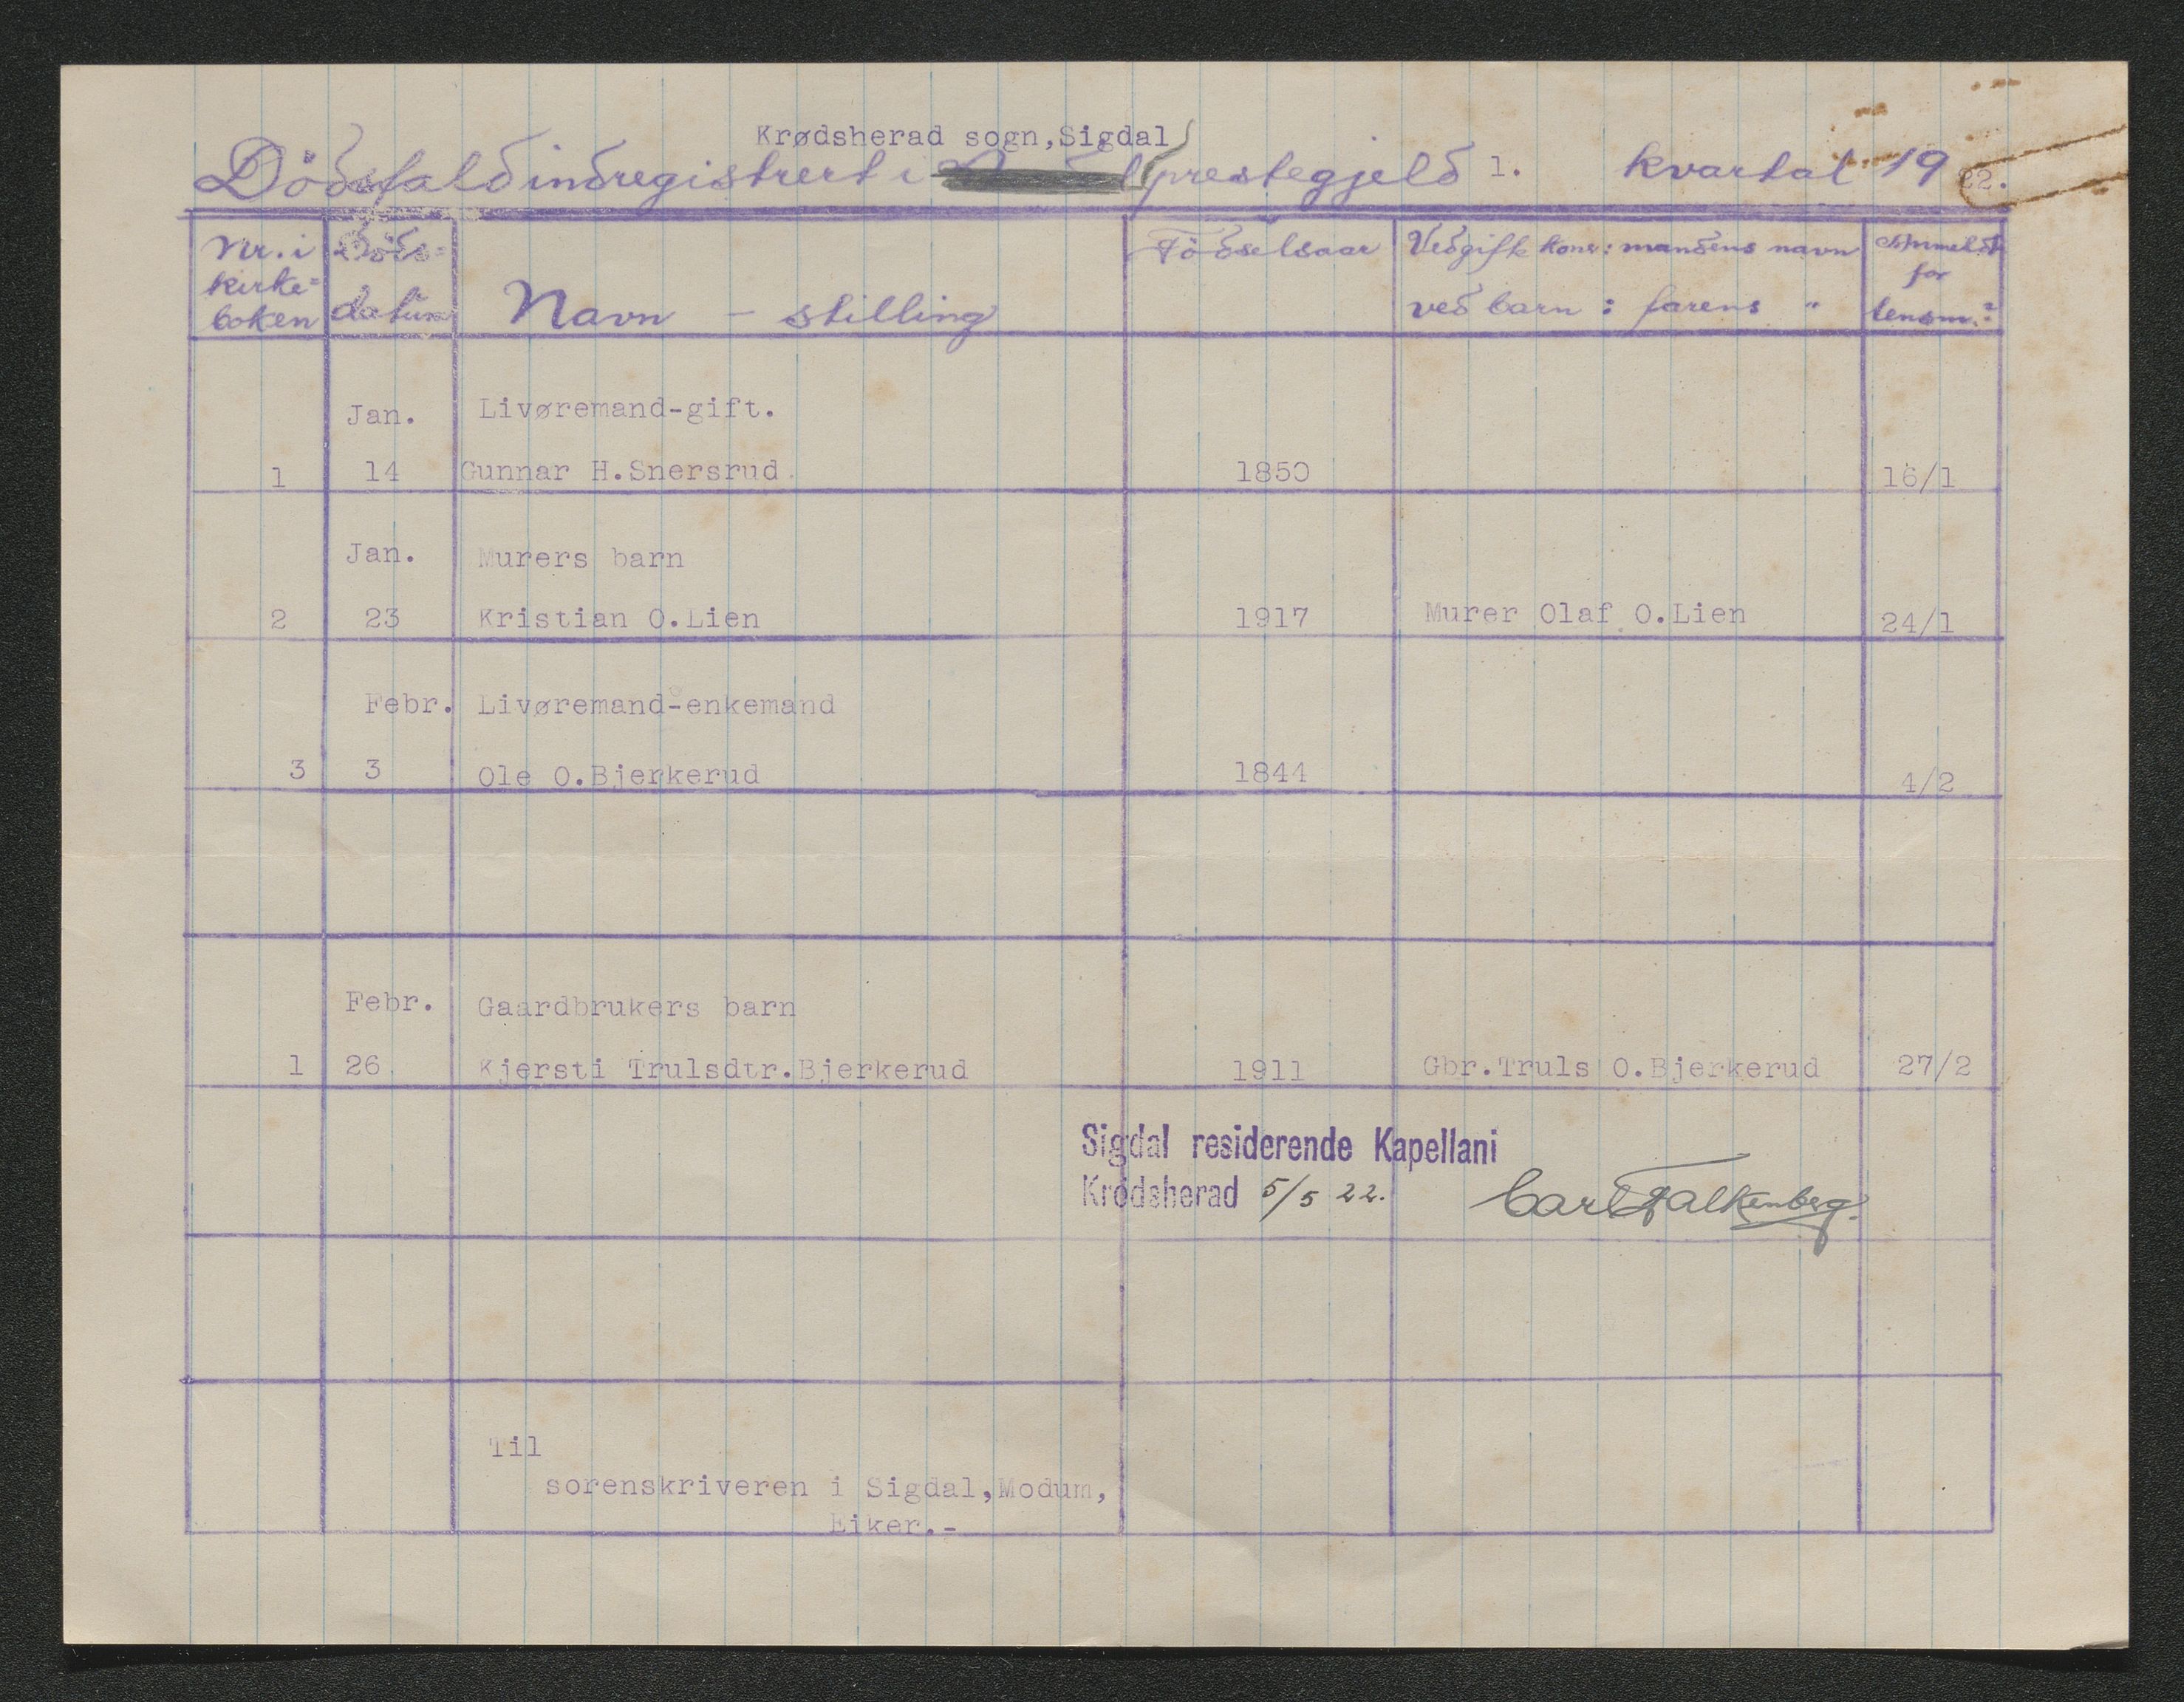 Krødsherad sogn, Sigdal
Dödsfald indregistrert i prestegjeld 1. kvartal 1922.
Nr. i kirke= boken
Döds= datum
Navn – stilling
Födselsaar
Ved gift kone: mandens navn
ved barn: farens "
Anmeldt for lensm.?
Jan. Livøremand-gift.
1 14 Gunnar H.Snersrud. 1850 16/1
Jan. Murers barn
2 23 Kristian O.Lien 1917 Murer Olaf O.Lien 24/1
Febr. Livøremand-enkemand
3 3 Ole O.Bjerkerud 1844 4/2
Febr. Gaardbrukers barn
1 26 Kjersti Trulsdtr.Bjerkerud 1911 Gbr.Truls O.Bjerkerud 27/2
Sigdal residerende Kapellani
Krødsherad 5/5 22. Carl Falkenberg.
Til
sorenskriveren i Sigdal,Modum,
Eiker.-